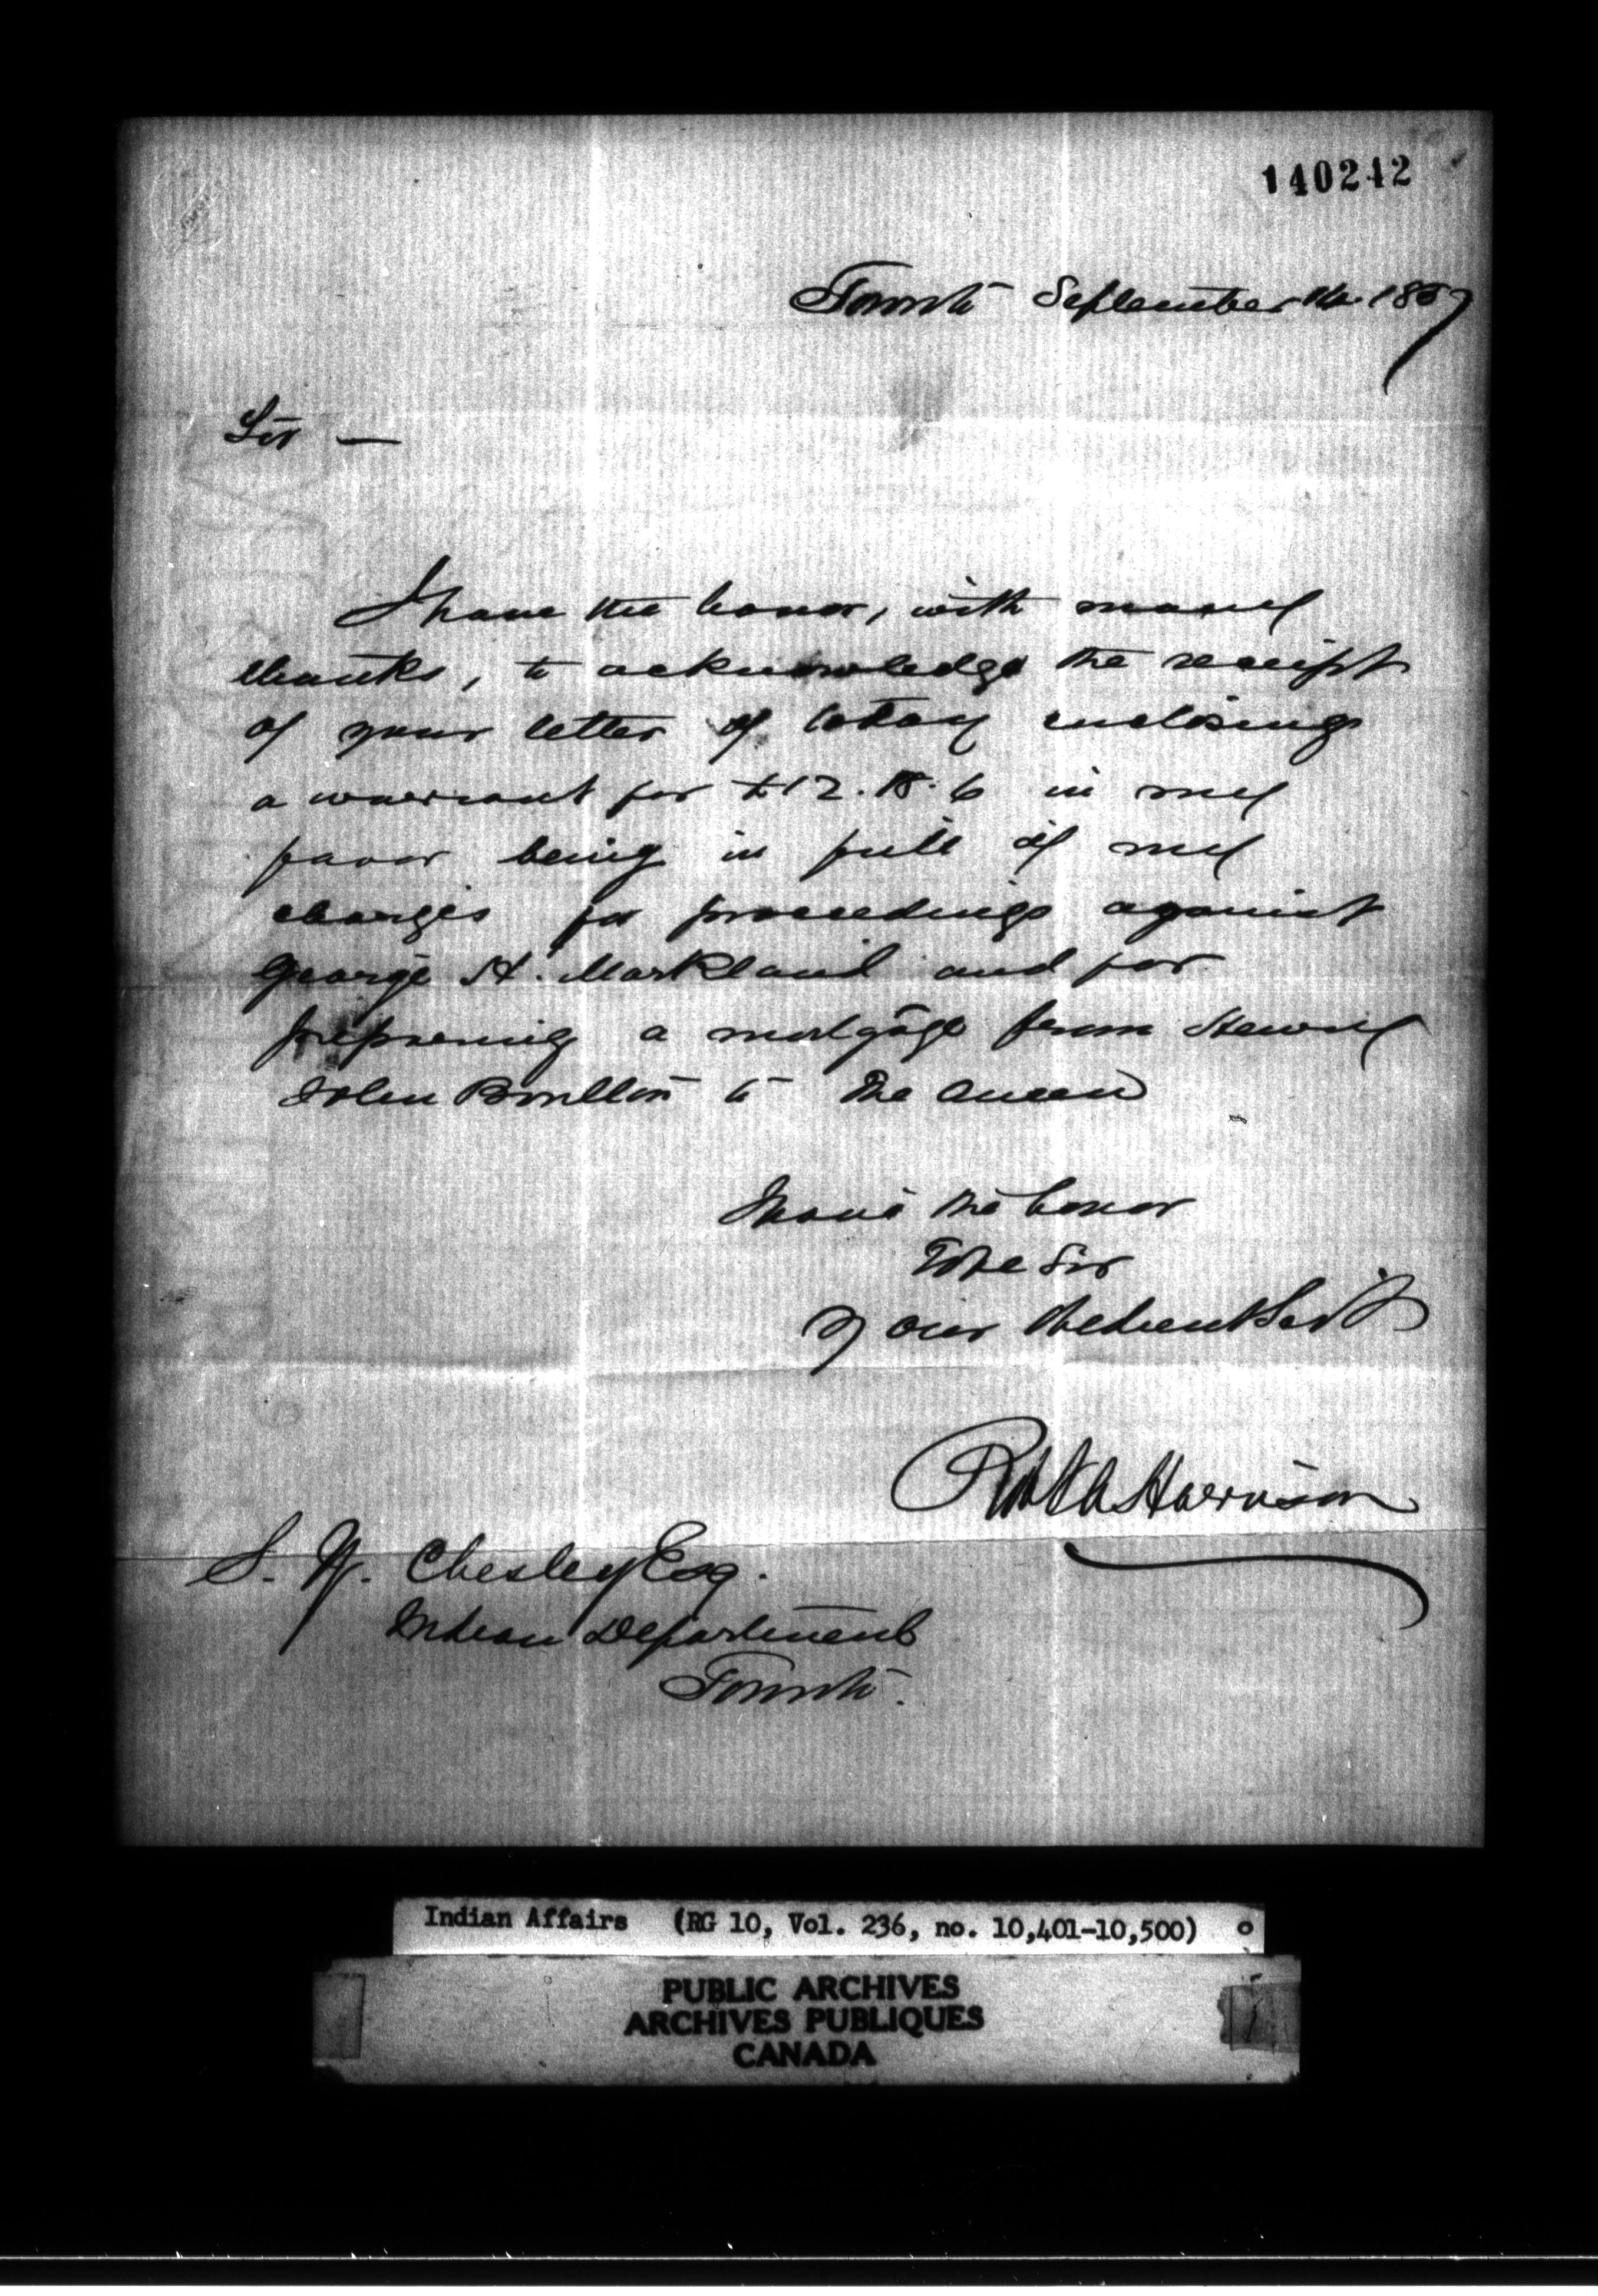 140242
Toronto September 16. 1857
Sir —
I have the honor, with many
thanks, to acknowledge the receipt
of your letter of today enclosing
a warrant for £12.18.6 in my
favor being in full of my
charges for proceedings against
George H. Markland and for
preparing a mortgage from Henry
John Boulton to The Queen
I have the honor
To be Sir
Your Obedient Servt
Robt A Harrison
S. Y. Chesley Esq.
Indian Department
Toronto.
Indian Affairs (RG 10, Vol. 236, no. 10,401-10,500)
PUBLIC ARCHIVES
ARCHIVES PUBLIQUES
CANADA